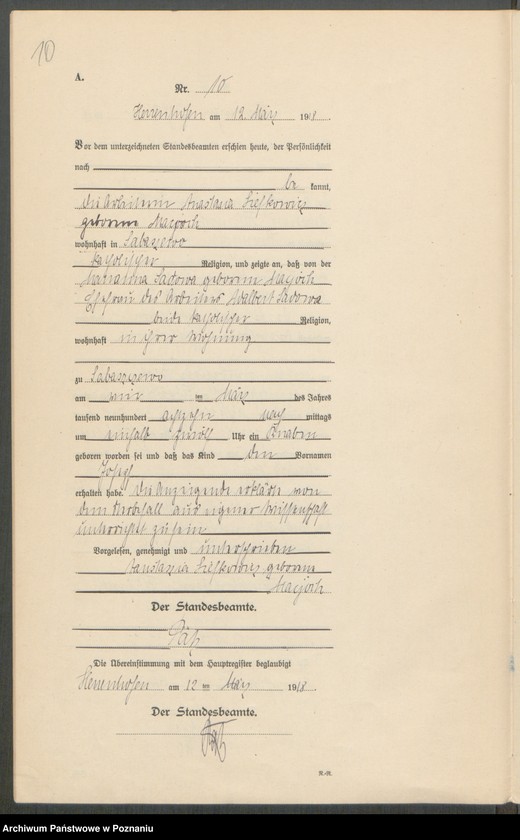 10
A.
Nr. 10
Herrenhofen am 12 März 1918.
Vor dem unterzeichneten Standesbeamten erschien heute, der Persönlichkeit
nach
be kannt,
die Arbeiterin Anastasia
geborene
wohnhaft in
katholischer Religion, und zeigte an, daß von der
Marianna Sadowa geborenen
Ehefrau des Arbeiters Adalbert Sadowa
beide katholischer Religion,
wohnhaft in ihrer Wohnung
zu
am März des Jahres
tausend neunhundert achtzehn nach mittags
um einhalb zwölf Uhr ein Knaben
geboren worden sei und daß das Kind den Vornamen
Josef
erhalten habe. Die Anzeigende erklärte von
dem aus eigener Wissenschaft
unterrichtet zu sein
Vorgelesen, genehmigt und unterschrieben
geborene
Der Standesbeamte.
Die Übereinstimmung mit dem Hauptregister beglaubigt
Herrenhofen am 12 ten März 1918.
Der Standesbeamte.
R.-R.
Archiwum Państwowe w Poznaniu